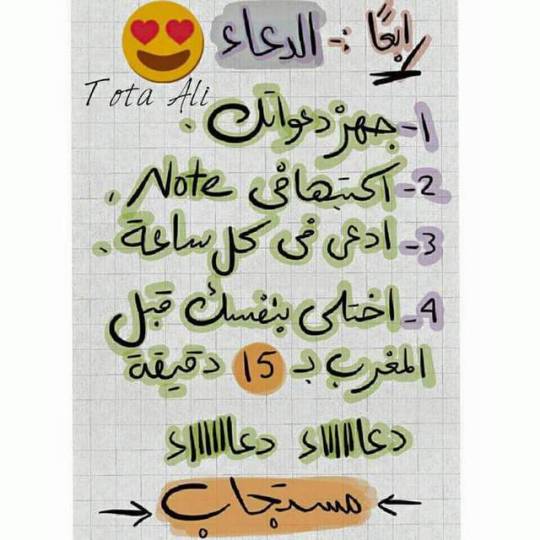 رابعًا :- الدعاء
Tota Ali
1- جهز دعواتك .
2- اكتبها في Note .
3- ادعي في كل ساعة .
4- اختلي بنفسك قبل
المغرب بـ 15 دقيقة
دعاااااء دعاااااااء
مستجاب